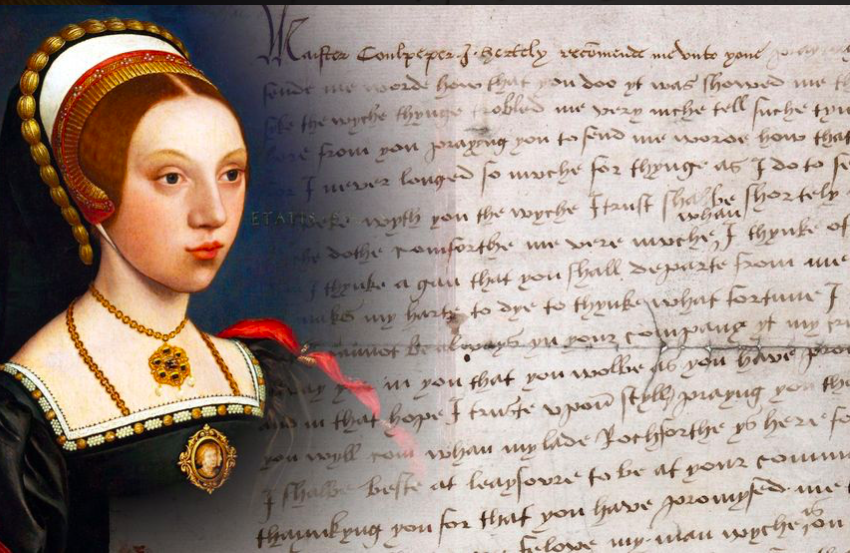 Maister Coulpeper I hertely recomende me vnto youe praying
sende me worde how that you doo yt was showed me
sike the wyche thynge trobled me very muche tell suche tym
here from you prayyng you to send me worde how that
for I never longed so muche for thynge as I do to se
ETATIS speke wyth you the wyche I trust shalbe shortely
whan
dothe comforthe me vere muche I thynke of
I thynke a gan that you shall departe from me
makes my harte to dye to thynke what fortune I
cannot be always yn your company yt my
in you that you wolbe as you have
and in that hope I truste vpon styll prayng you
you wyll com whan my lade Rochforthe ys here
I shalbe beste at leaysoure to be at your
thaynkyng you for that you have promysed me
felowe my man wyche ys on